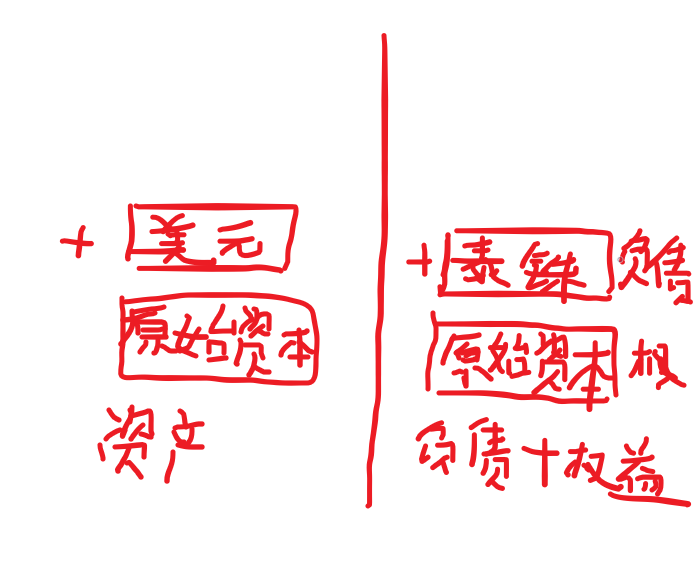 + 美元
原始资本
资产
+ 泰铢 负债
原始资本 权
负债+权益